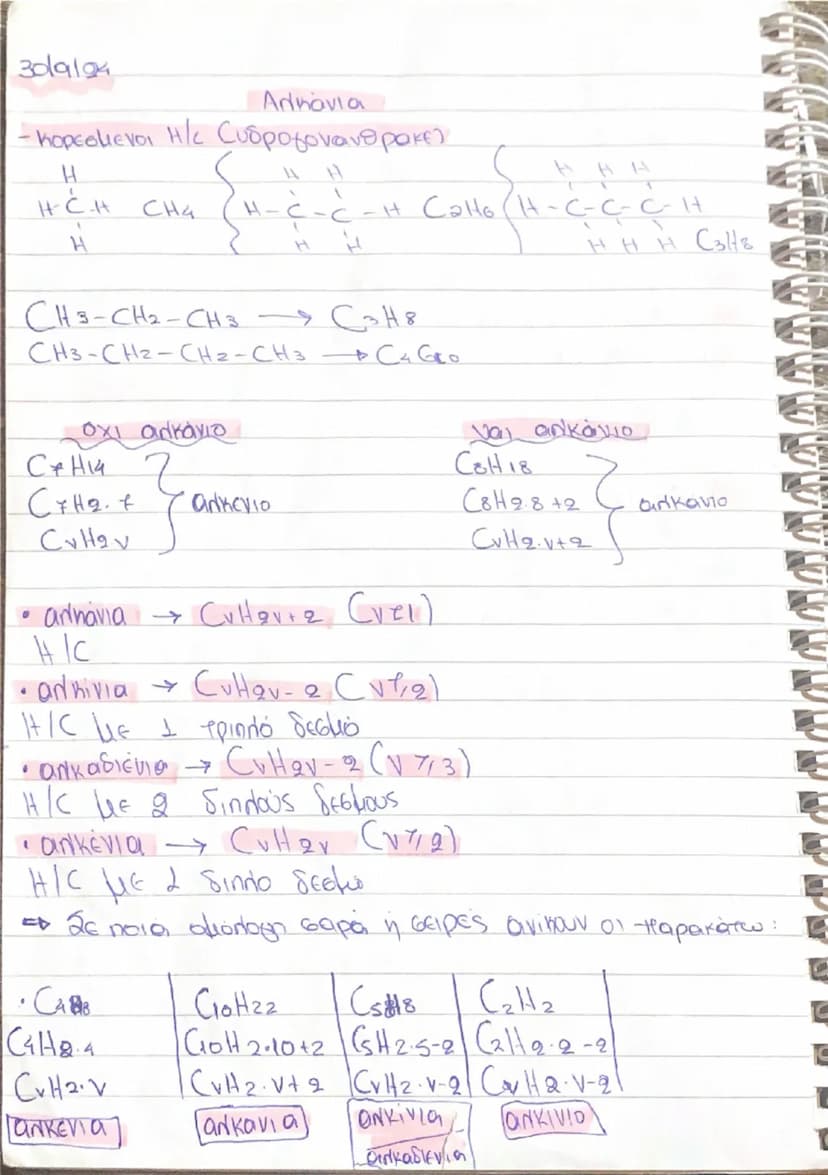 30/9/24
Αλκάνια
- κορεσμένοι Η/C (υδρογονάνθρακες)
H H H H H H
H-C-H CH4 H-C-C-H C2H6 H-C-C-C-H
H H H H H H C3H8
CH3-CH2-CH3 → C3H8
CH3-CH2-CH2-CH3 → C4G10
όχι αλκάνιο ναι αλκάνιο
C7H14 C8H18
C7H2.7 αλκένιο C8H2.8+2 αλκανιο
CνH2ν CνH2.ν+2
• αλκάνια → CνH2ν+2 (ν≥1)
H/C
• αλκίνια → CνH2ν-2 (ν≥2)
H/C με 1 τριπλό δεσμό
• αλκαδιένια → CνH2ν-2 (ν≥3)
H/C με 2 διπλούς δεσμους
• αλκένια → CνH2ν (ν≥2)
H/C με 1 διπλο δεσμο
⇒ Σε ποιά ομόλογη σειρά ή σειρές ανίκουν οι παρακάτω:
• C4H8 C10H22 C5H8 C2H2
C4H2.4 C10H2.10+2 C5H2.5-2 C2H2.2-2
CνH2.ν CνH2.ν+2 CνH2.ν-2 CνH2.ν-2
αλκένια αλκανια αλκίνια αλκινιο
αλκαδιένια